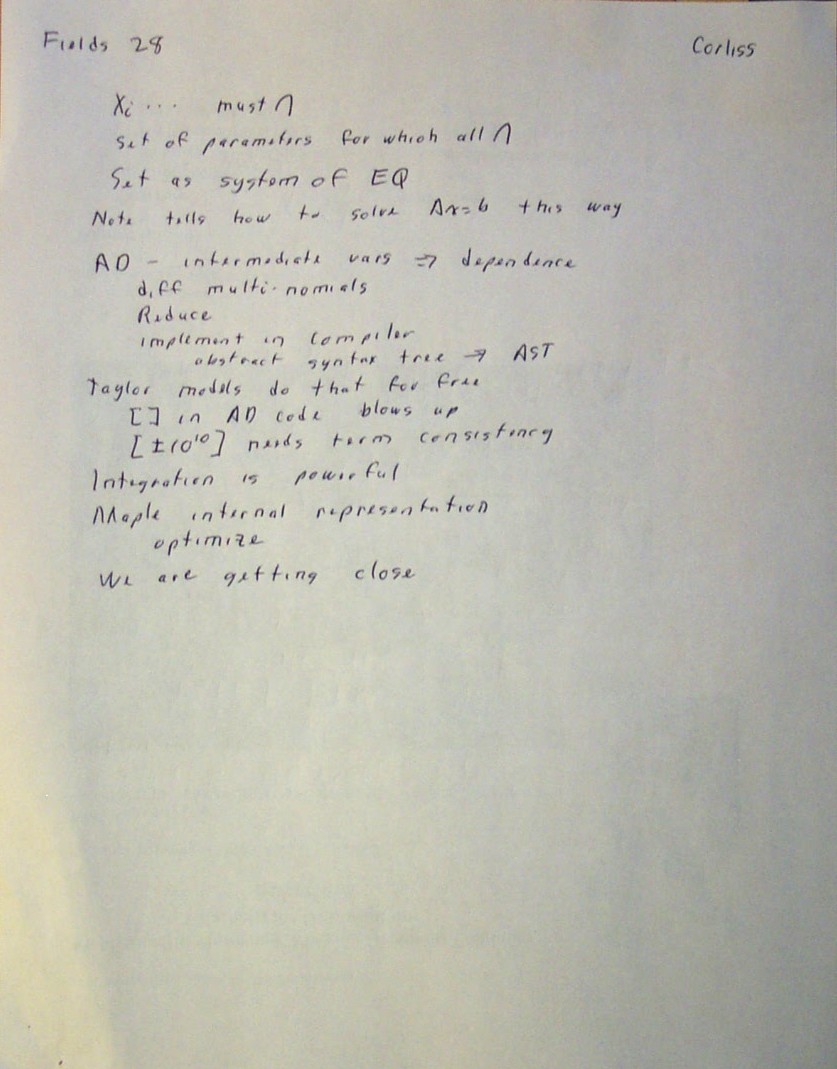 Fields 28 Corliss
Xi ... must ∩
Set of parameters for which all ∩
Set as system of EQ
Note tells how to solve Ax=b this way
AD - intermediate vars => dependence
diff multi-nomials
Reduce
implement in compiler
abstract syntax tree → AST
Taylor models do that for free
[] in AD code blows up
[±10¹⁰] needs term consistency
Integration is powerful
Maple internal representation
optimize
We are getting close